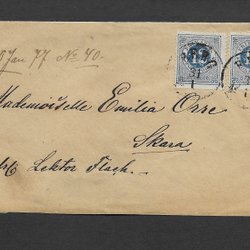 Jan 77 No 40.
Mademoiselle Emilia Orre
Skara
Lektor Flach.